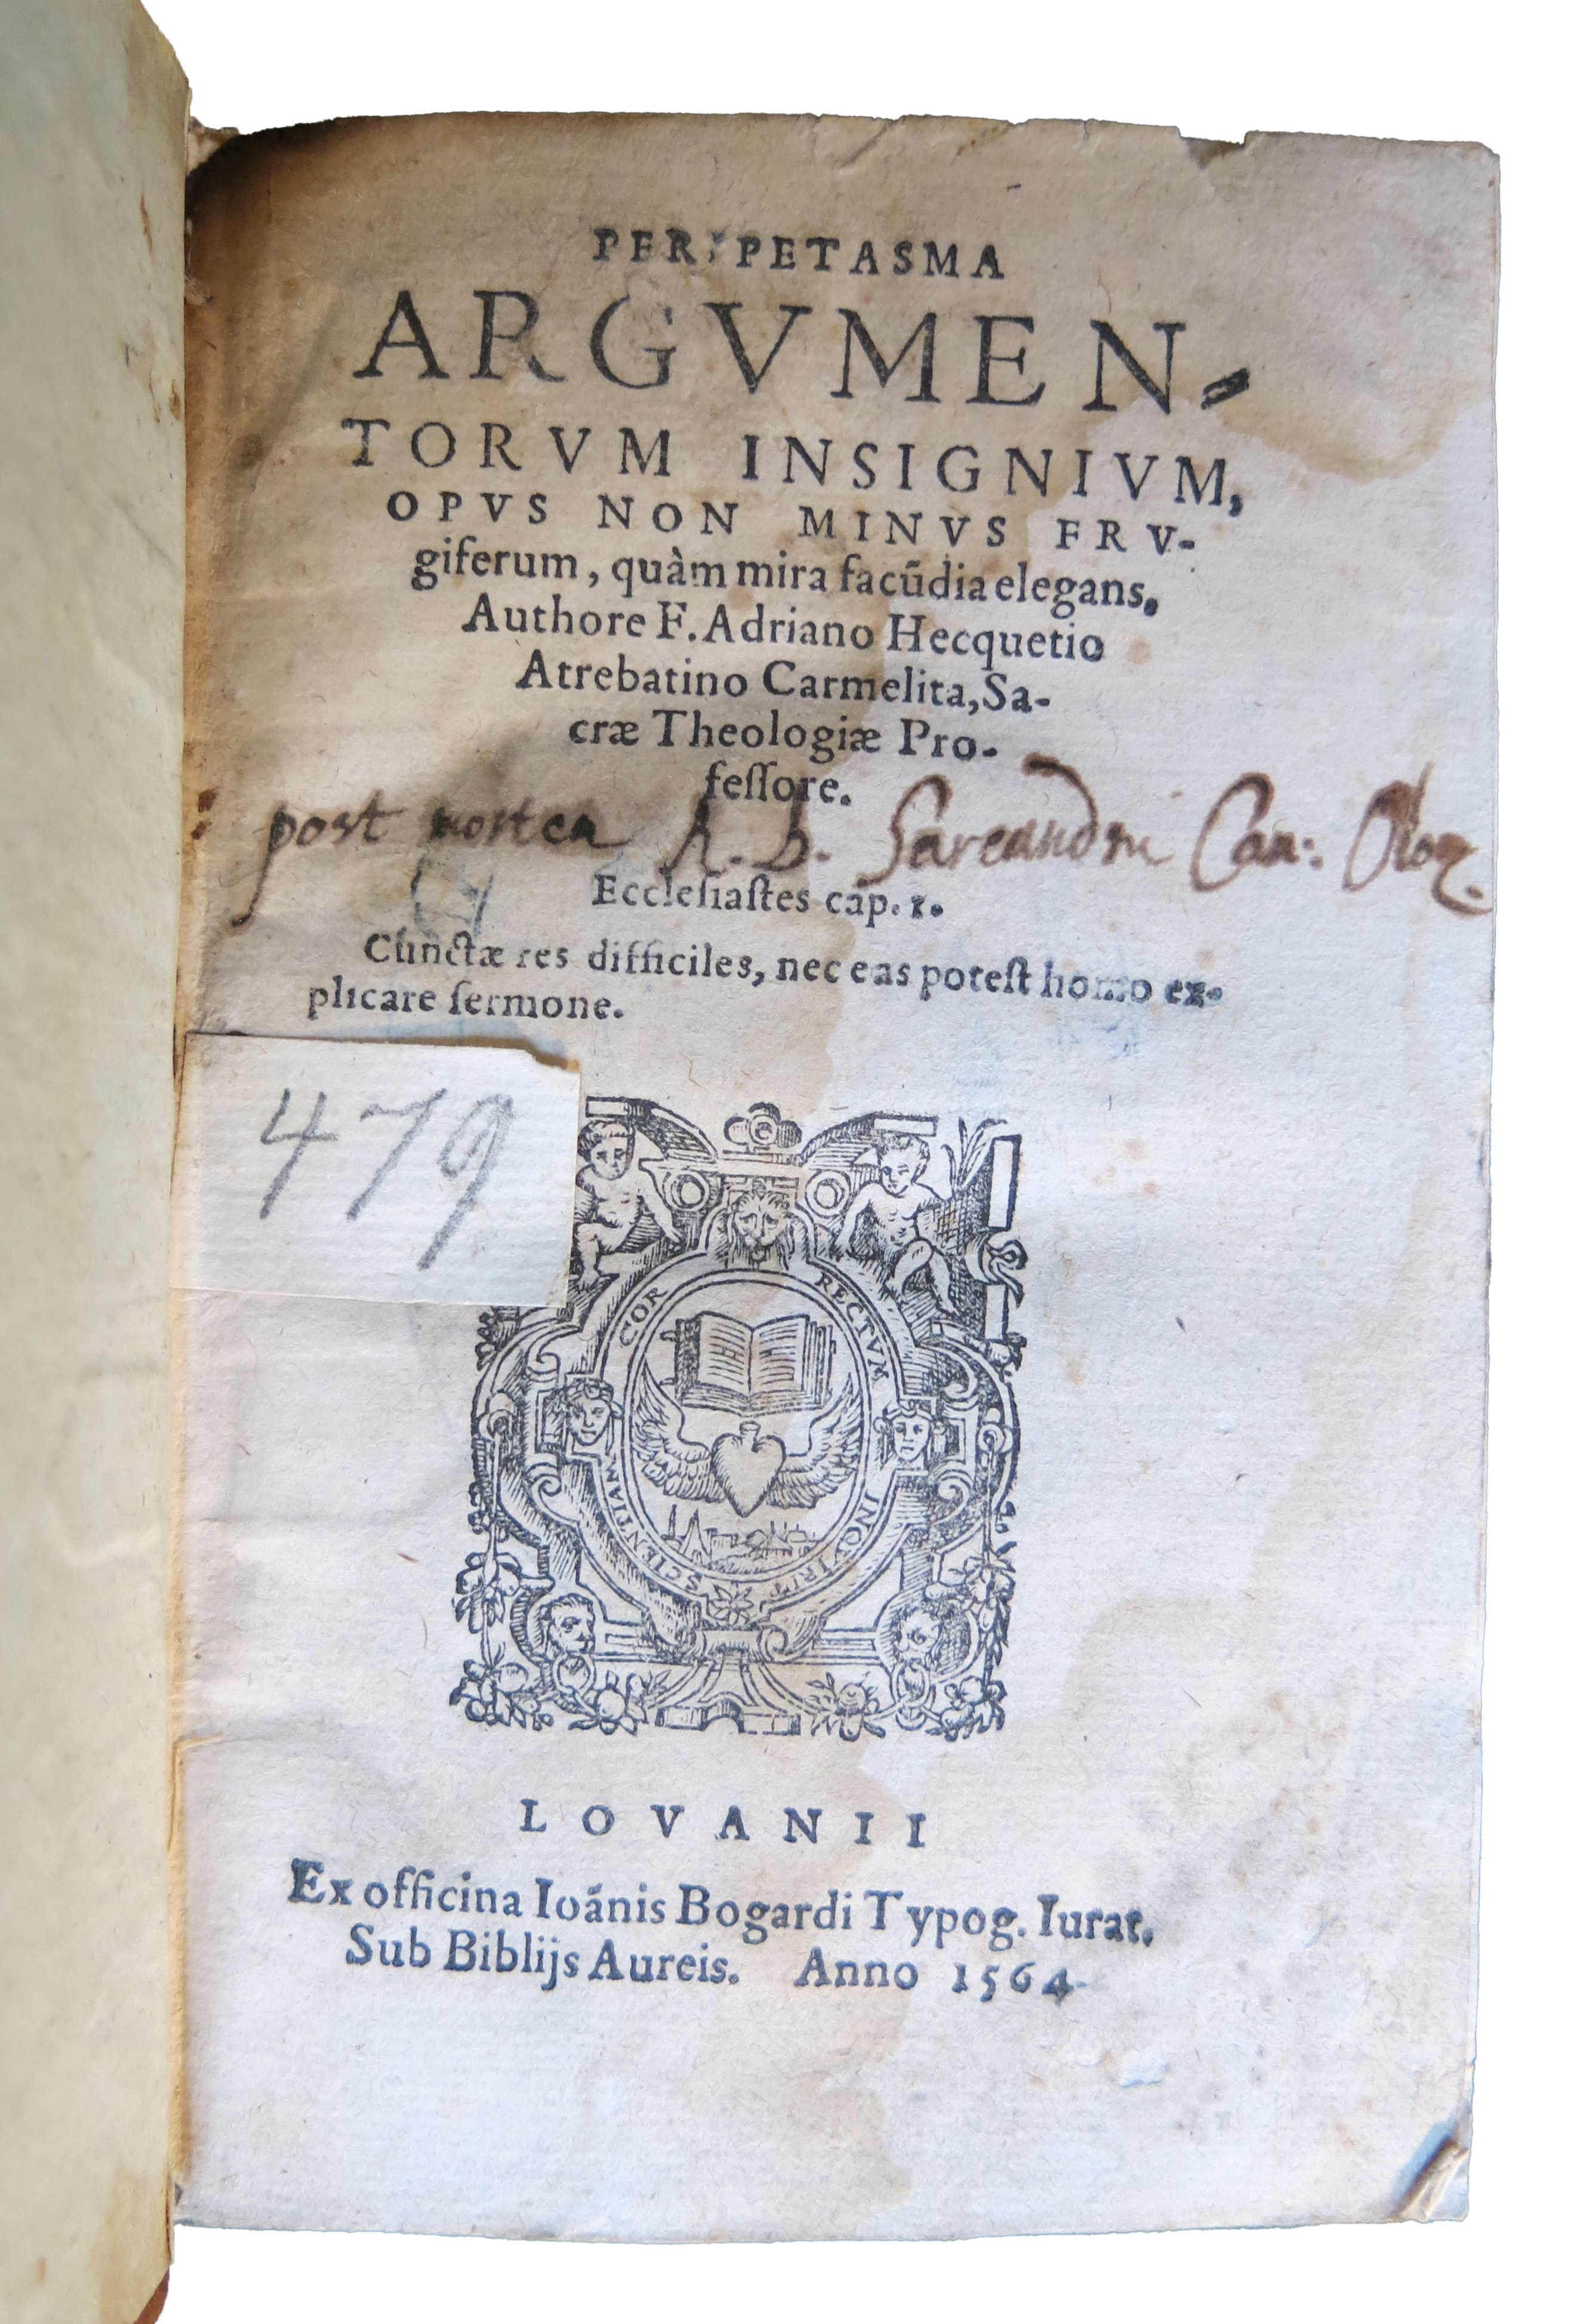 PERIPETASMA
ARGVMEN-
TORVM INSIGNIVM,
OPVS NON MINVS FRV-
giferum, quàm mira facūdia elegans,
Authore F. Adriano Hecquetio
Atrebatino Carmelita, Sa-
cræ Theologiæ Pro-
feſſore.
post mortem A. D. Sarcandri Can:
Eccleſiaſtes cap. 1.
Cunctæ res difficiles, nec eas poteſt homo ex-
plicare ſermone.
479
COR RECTVM INQVIRIT SCIENTIAM
LOVANII
Ex officina Ioānis Bogardi Typog. Iurat.
Sub Biblijs Aureis. Anno 1564.